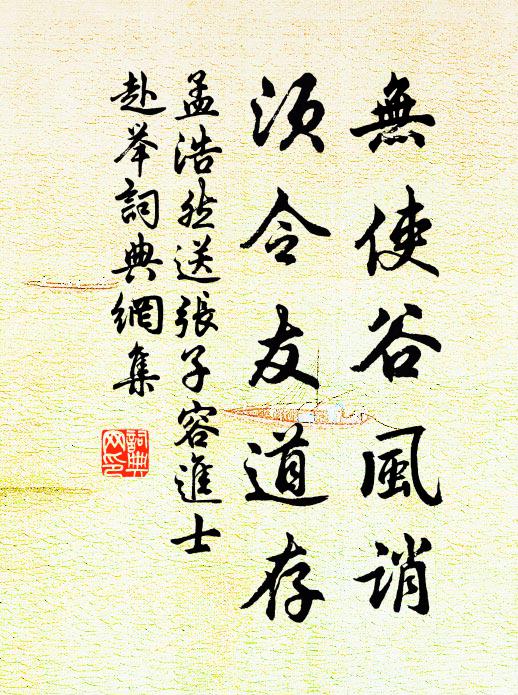 無使谷風誚
須令友道存
孟浩然送張子容進士
赴举詞典網集
詞典网印